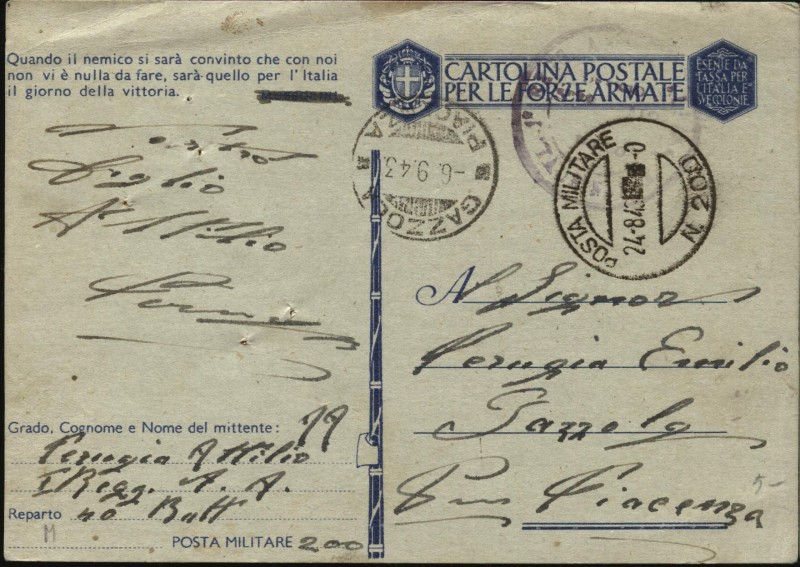 Quando il nemico si sarà convinto che con noi
non vi è nulla da fare, sarà quello per l'Italia
il giorno della vittoria.
CARTOLINA POSTALE
PER LE FORZE ARMATE
ESENTE DA
TASSA PER
L'ITALIA E
SUE COLONIE
GAZZOLA
PIACENZA
-6.9.43
POSTA MILITARE
N. 200
24-8-43
Vostro
figlio
Attilio
Al Signor
Perugia Emilio
Gazzola
Piacenza
5-
Grado, Cognome e Nome del mittente:
Perugia Attilio
I Regg. A. A.
Reparto 40 Batt
M
POSTA MILITARE 200